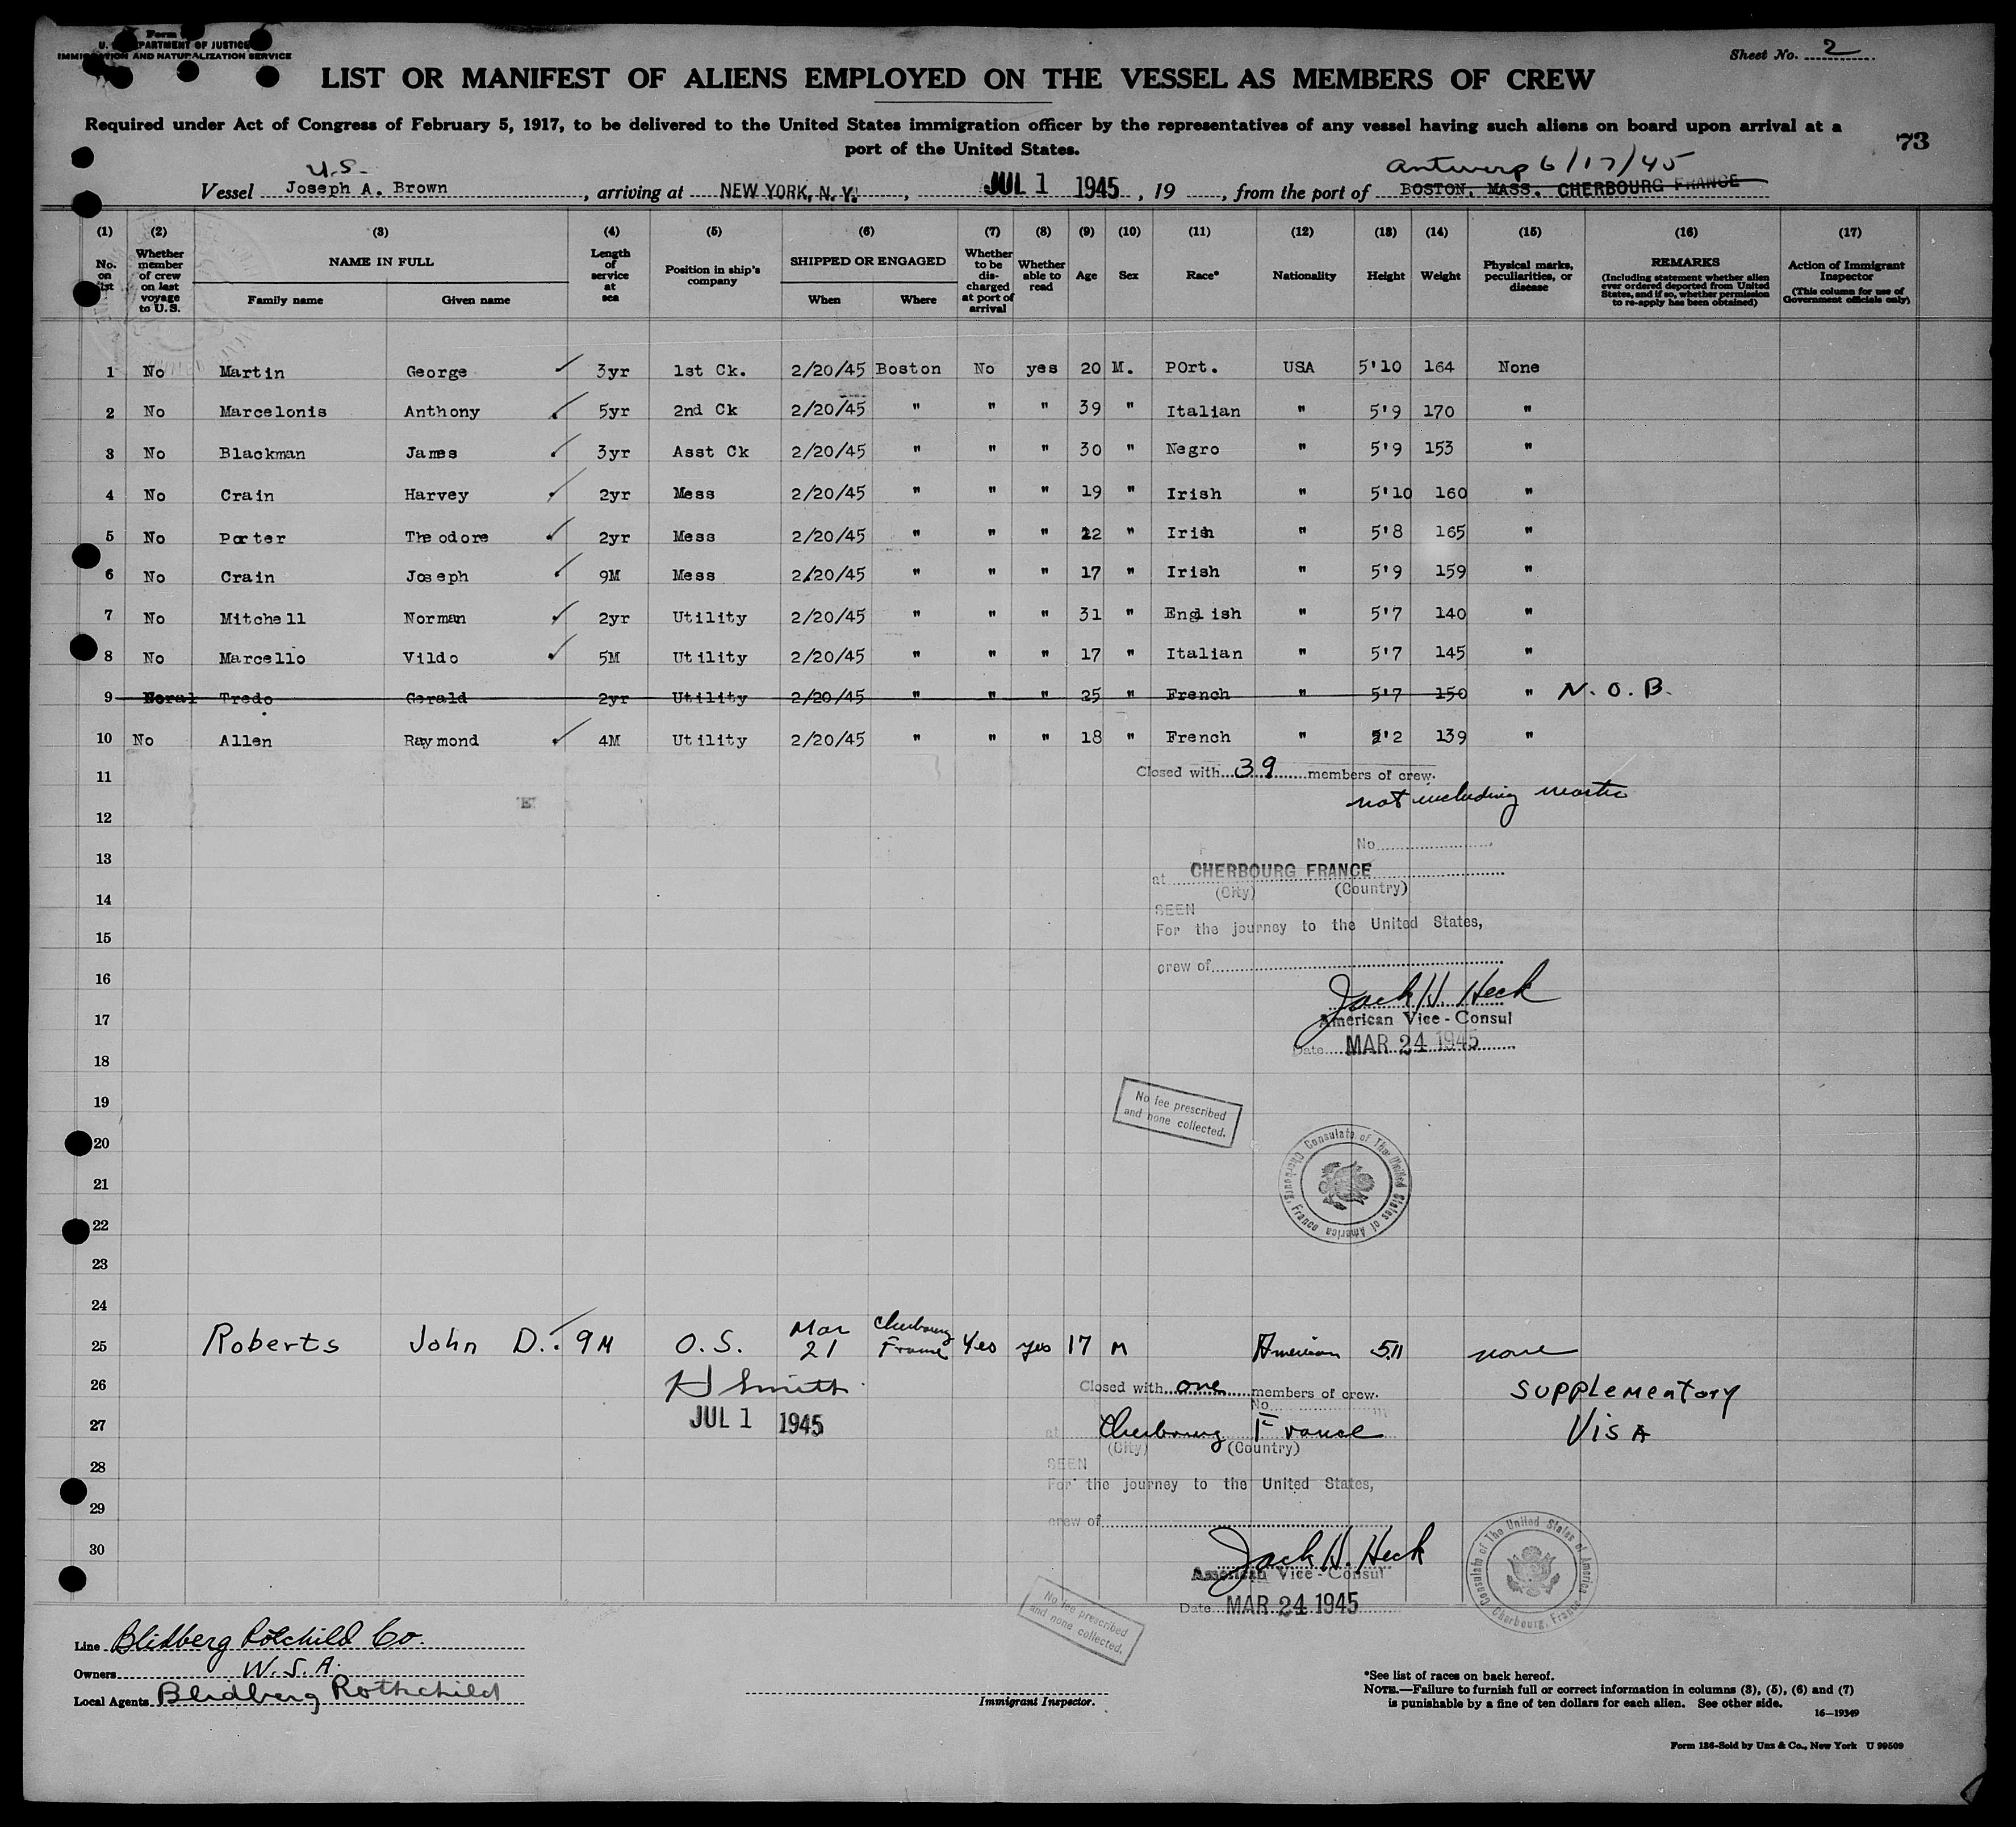 Form
U. S. DEPARTMENT OF JUSTICE
IMMIGRATION AND NATURALIZATION SERVICE
Sheet No. 2
LIST OR MANIFEST OF ALIENS EMPLOYED ON THE VESSEL AS MEMBERS OF CREW
Required under Act of Congress of February 5, 1917, to be delivered to the United States immigration officer by the representatives of any vessel having such aliens on board upon arrival at a
port of the United States.
73
U.S. Antwerp 6/17/45
Vessel Joseph A. Brown, arriving at NEW YORK, N. Y., JUL 1 1945, 19, from the port of BOSTON, MASS. CHERBOURG FRANCE
(1) (2) (3) (4) (5) (6) (7) (8) (9) (10) (11) (12) (13) (14) (15) (16) (17)
No. on list
Whether member of crew on last voyage to U.S.
NAME IN FULL
Family name Given name
Length of service at sea
Position in ship's company
SHIPPED OR ENGAGED
When Where
Whether to be discharged at port of arrival
Whether able to read
Age
Sex
Race*
Nationality
Height
Weight
Physical marks, peculiarities, or disease
REMARKS
(Including statement whether alien ever ordered deported from United States, and if so, whether permission to re-apply has been obtained)
Action of Immigrant Inspector
(This column for use of Government officials only)
1 No Martin George 3yr 1st Ck. 2/20/45 Boston No yes 20 M. POrt. USA 5'10 164 None
2 No Marcelonis Anthony 5yr 2nd Ck 2/20/45 " " " 39 " Italian " 5'9 170 "
3 No Blackman James 3yr Asst Ck 2/20/45 " " " 30 " Negro " 5'9 153 "
4 No Crain Harvey 2yr Mess 2/20/45 " " " 19 " Irish " 5'10 160 "
5 No Porter Theodore 2yr Mess 2/20/45 " " " 22 " Irish " 5'8 165 "
6 No Crain Joseph 9M Mess 2/20/45 " " " 17 " Irish " 5'9 159 "
7 No Mitchell Norman 2yr Utility 2/20/45 " " " 31 " English " 5'7 140 "
8 No Marcello Vildo 5M Utility 2/20/45 " " " 17 " Italian " 5'7 145 "
9 Tredo Gerald 2yr Utility 2/20/45 " " " 25 " French " 5'7 150 " N.O.B.
10 No Allen Raymond 4M Utility 2/20/45 " " " 18 " French " 5'2 139 "
11 Closed with 39 members of crew.
not including master
12
No.
13
at CHERBOURG FRANCE
(City) (Country)
14
SEEN
For the journey to the United States,
15
crew of
16
Jack H. Heck
17
American Vice-Consul
Date MAR 24 1945
18
19
No fee prescribed
and none collected.
20
Consulate of The United States of America Cherbourg, France
21
22
23
24
25 Roberts John D. 9M O.S. Mar 21 Cherbourg France Yes yes 17 M American 5.11 none
26 H Smith Closed with one members of crew. Supplementary
No.
27 JUL 1 1945 at Cherbourg France Visa
(City) (Country)
28
SEEN
For the journey to the United States,
29
crew of
30
Jack H. Heck
American Vice-Consul
Date MAR 24 1945
Consulate of The United States of America Cherbourg, France
No fee prescribed
and none collected.
Line Blidberg Rotchild Co.
Owners W.S.A.
Local Agents Blidberg Rothchild
Immigrant Inspector.
*See list of races on back hereof.
NOTE.—Failure to furnish full or correct information in columns (3), (5), (6) and (7)
is punishable by a fine of ten dollars for each alien. See other side.
16—19349
Form 136-Sold by Unz & Co., New York U 99509